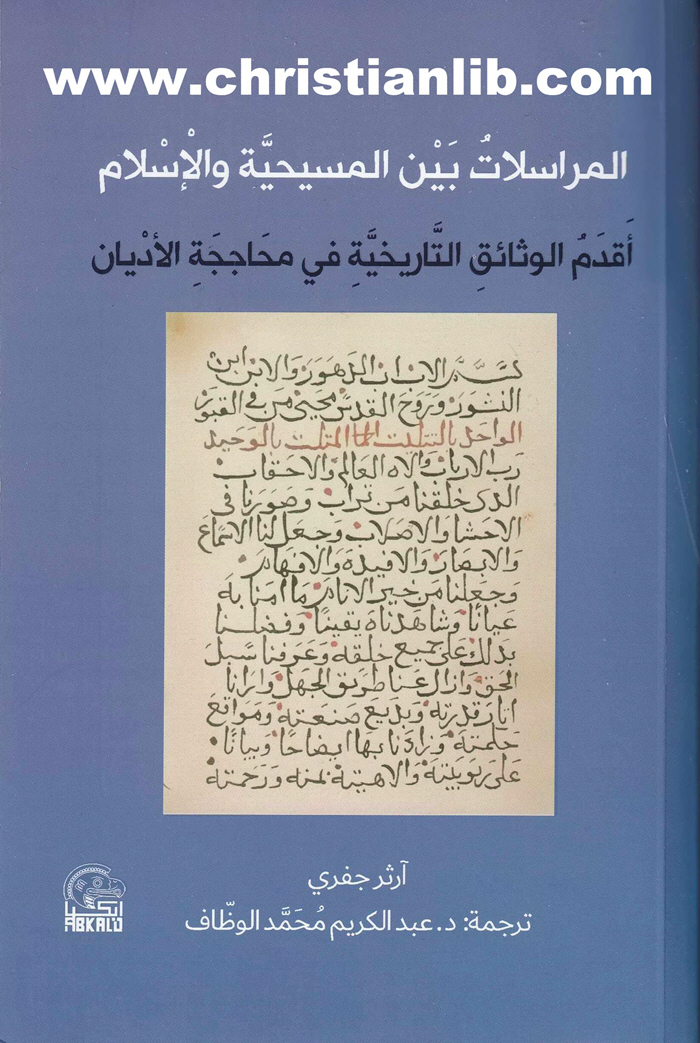 www.christianlib.com
المراسلاتُ بَيْن المسيحيَّة والْإسْلام
أَقدَمُ الوثائقِ التَّاريخيَّةِ في محَاججَةِ الأدْيان
بسم الاب اب الدهور والابن ابن
النور وروح القدس محيى من في القبور
الواحد بالتثليث المثلث بالوحيد
رب الارباب والاه العالم والاحقاب
الذى خلقنا من تراب وصورنا فى
الاحشا والاصلاب وجعل لنا الاسماع
والابصار والافيدة والافهام
وجعلنا من خير الانام ما امنا به
عيانا وشاهدناه يقينا وفضلنا
بذلك على جميع خلقه وعرفنا سبل
الحق وازال عنا طريق الجهل وارانا
اثار قدرته وبديع صنعته ومواقع
حكمته وزادنا بها ايضاحا وبيانا
على ربوبيته والاهيته بمنه ورحمته
آرثر جفري
ترجمة: د. عبد الكريم مُحَمَّد الوظّاف
ابكالو
ABKALU